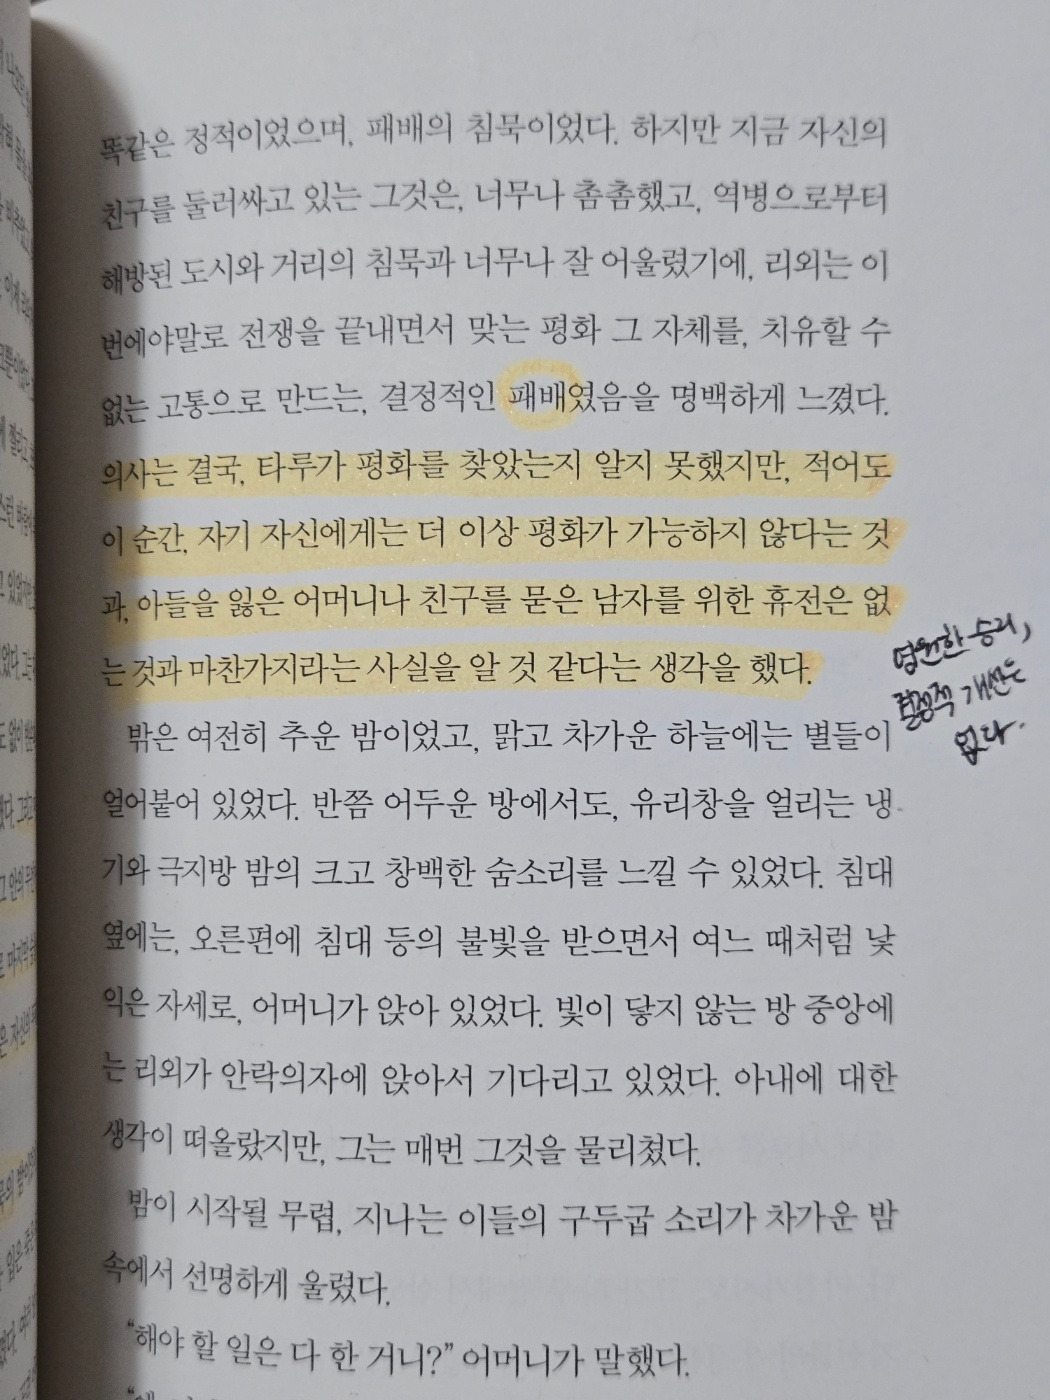 똑같은 정적이었으며, 패배의 침묵이었다. 하지만 지금 자신의
친구를 둘러싸고 있는 그것은, 너무나 촘촘했고, 역병으로부터
해방된 도시와 거리의 침묵과 너무나 잘 어울렸기에, 리외는 이
번에야말로 전쟁을 끝내면서 맞는 평화 그 자체를, 치유할 수
없는 고통으로 만드는, 결정적인 패배였음을 명백하게 느꼈다.
의사는 결국, 타루가 평화를 찾았는지 알지 못했지만, 적어도
이 순간, 자기 자신에게는 더 이상 평화가 가능하지 않다는 것
과, 아들을 잃은 어머니나 친구를 묻은 남자를 위한 휴전은 없
는 것과 마찬가지라는 사실을 알 것 같다는 생각을 했다.
영원한 승리,
결정적 개선은
없다.
밖은 여전히 추운 밤이었고, 맑고 차가운 하늘에는 별들이
얼어붙어 있었다. 반쯤 어두운 방에서도, 유리창을 얼리는 냉
기와 극지방 밤의 크고 창백한 숨소리를 느낄 수 있었다. 침대
옆에는, 오른편에 침대 등의 불빛을 받으면서 여느 때처럼 낯
익은 자세로, 어머니가 앉아 있었다. 빛이 닿지 않는 방 중앙에
는 리외가 안락의자에 앉아서 기다리고 있었다. 아내에 대한
생각이 떠올랐지만, 그는 매번 그것을 물리쳤다.
밤이 시작될 무렵, 지나는 이들의 구두굽 소리가 차가운 밤
속에서 선명하게 울렸다.
“해야 할 일은 다 한 거니?” 어머니가 말했다.